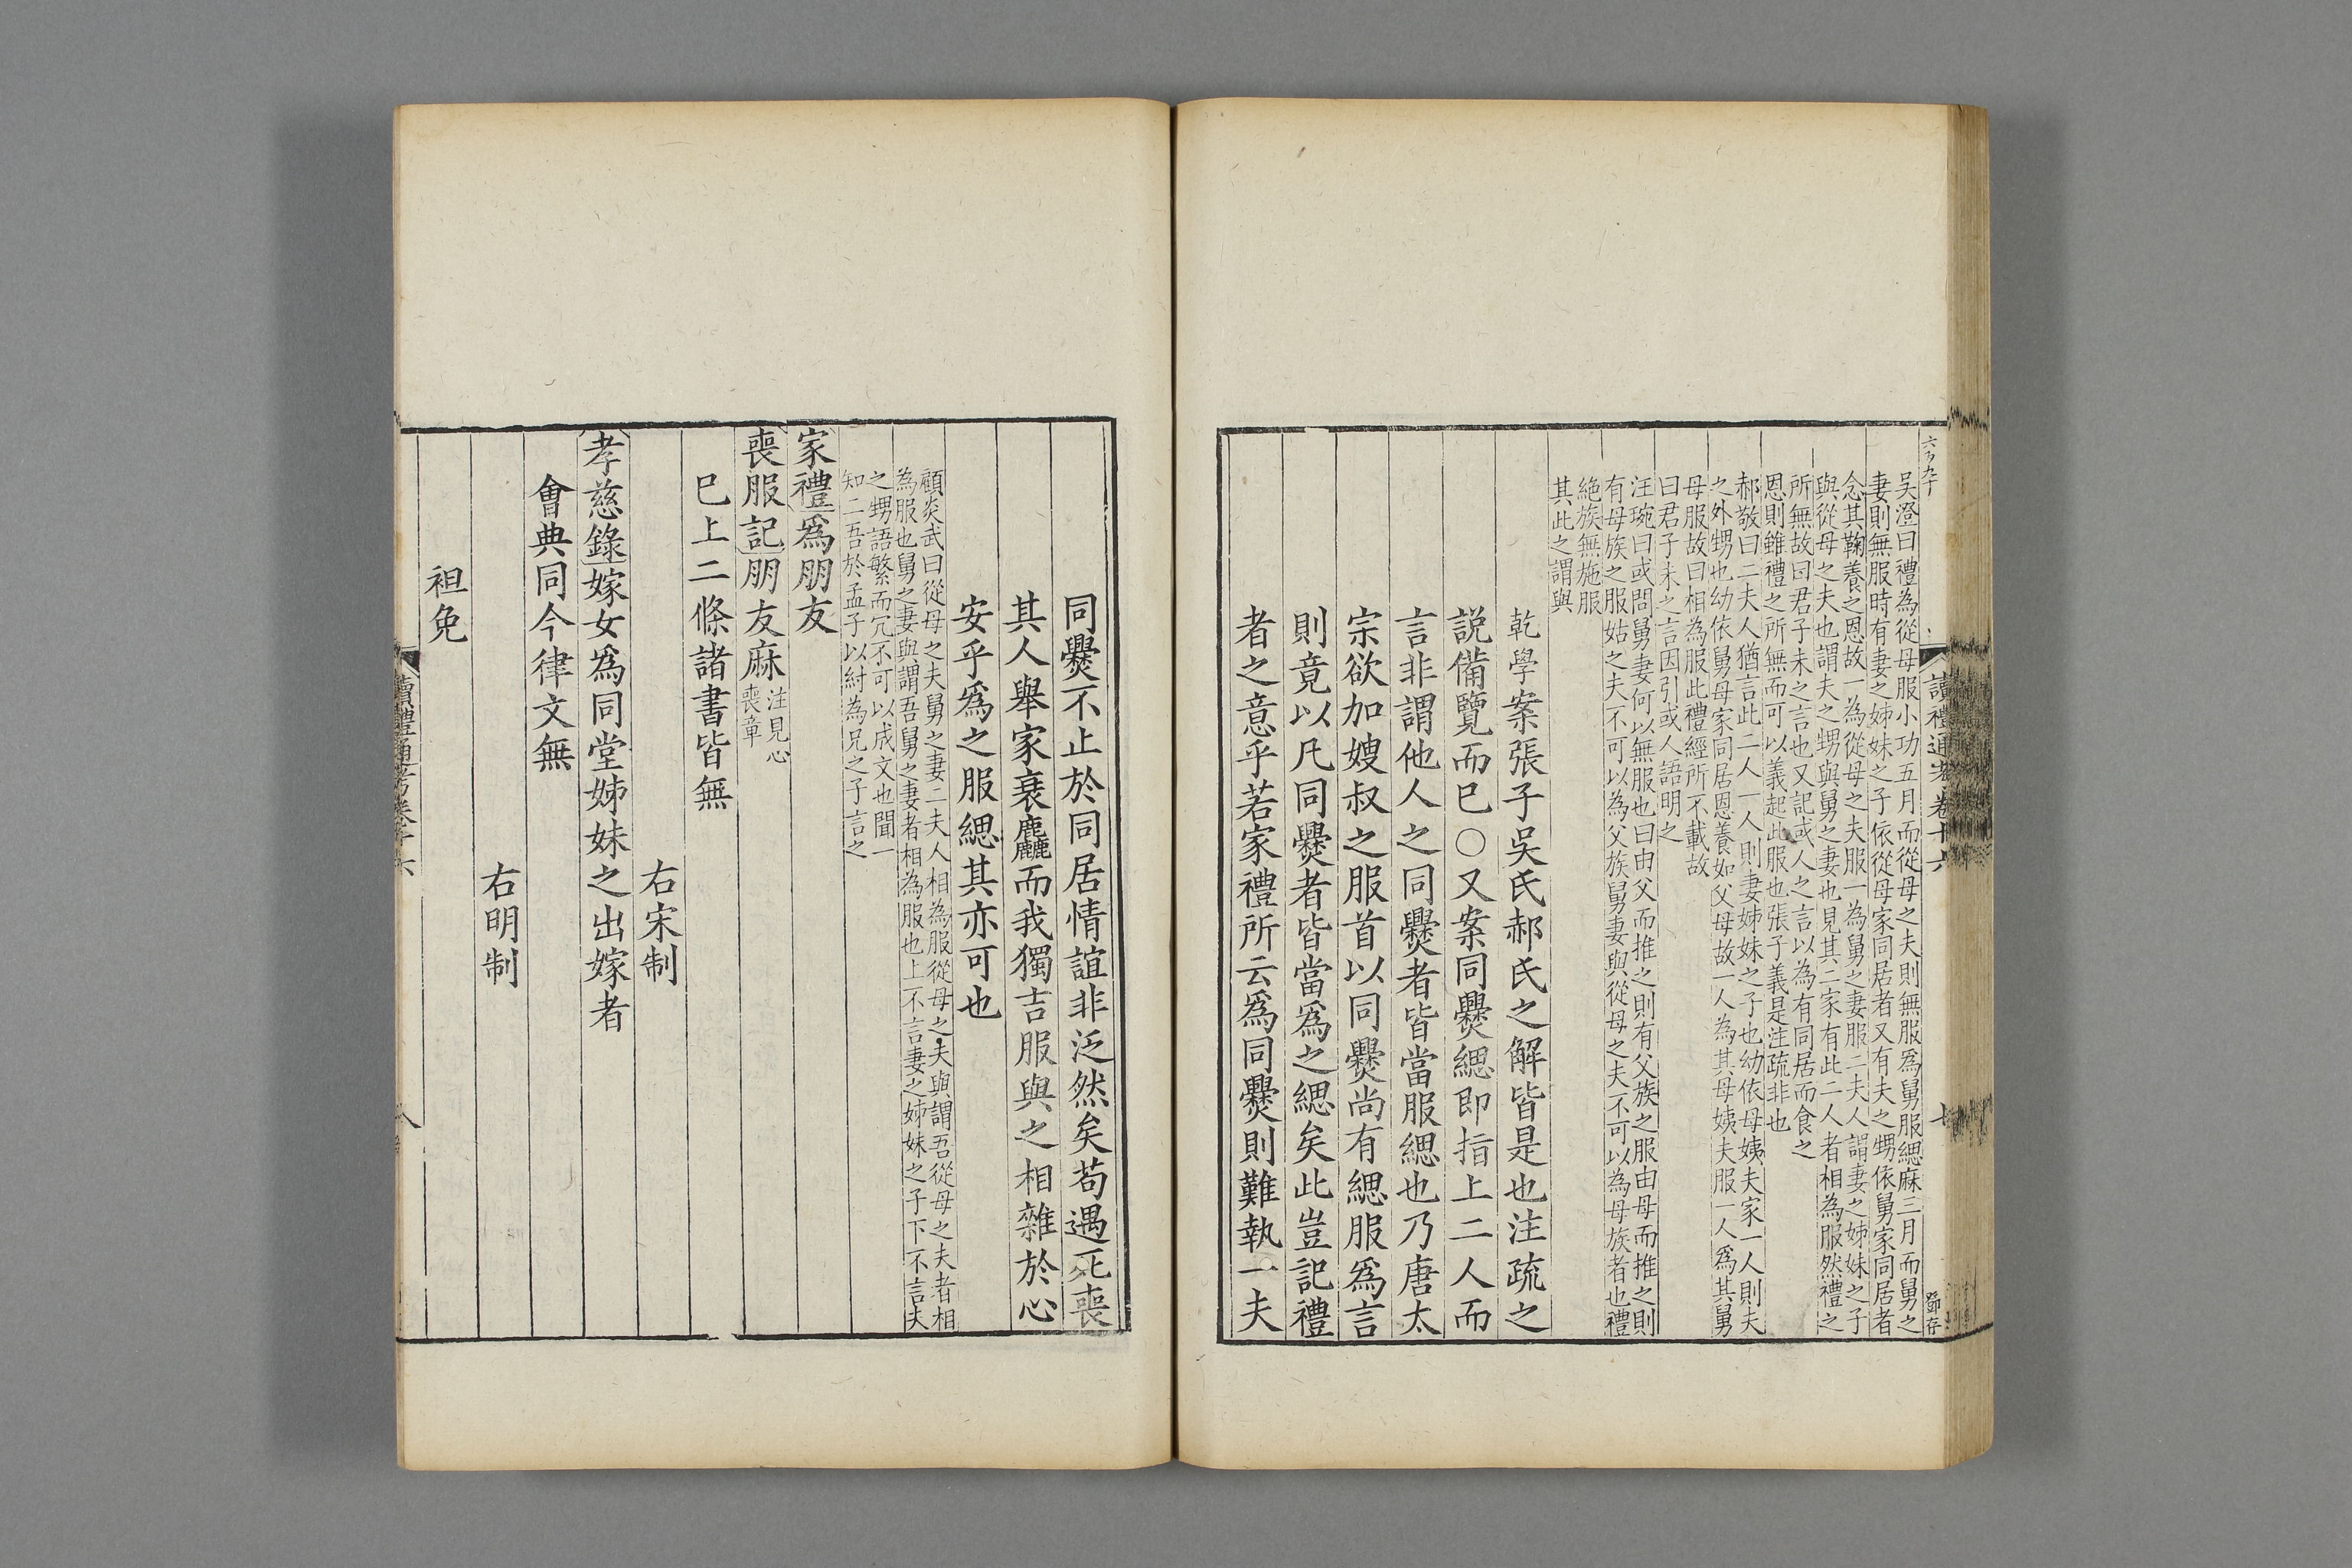 吳澄曰禮為從母服小功五月而從母之夫則無服爲舅服緦麻三月而舅之
妻則無服時有妻之姊妹之子依從母家同居者又有夫之甥依舅家同居者
念其鞠養之恩故一為從母之夫服一為舅之妻服二夫人謂妻之姊妹之子
與從母之夫也謂夫之甥與舅之妻也見其二家有此二人者相為服然禮之
所無故曰君子未之言也又記或人之言以為有同居而食之
恩則雖禮之所無而可以義起此服也張子義是注疏非也
郝敬曰二夫人猶言此二人一人則妻姊妹之子也幼依母姨夫家一人則夫
之外甥也幼依舅母家同居恩養如父母故一人為其母姨夫服一人爲其舅
母服故曰相為服此禮經所不載故
曰君子未之言因引或人語明之
汪琬曰或問舅妻何以無服也曰由父而推之則有父族之服由母而推之則
有母族之服姑之夫不可以為父族舅妻與從母之夫不可以為母族者也禮
絶族無施服
其此之謂與
乾學案張子吳氏郝氏之解皆是也注疏之
説備覽而已○又案同爨緦即指上二人而
言非謂他人之同爨者皆當服緦也乃唐太
宗欲加嫂叔之服首以同爨尚有緦服爲言
則竟以凡同爨者皆當爲之緦矣此豈記禮
者之意乎若家禮所云爲同爨則難執一夫
讀禮通考卷十六
鄧存
同爨不止於同居情誼非泛然矣苟遇死喪
其人舉家衰麤而我獨吉服與之相雜於心
安乎爲之服緦其亦可也
顧炎武曰從母之夫舅之妻二夫人相為服從母之夫與謂吾從母之夫者相
為服也舅之妻與謂吾舅之妻者相為服也上不言妻之姊妹之子下不言夫
之甥語繁而冗不可以成文也聞一
知二吾於孟子以紂為兄之子言之
家禮爲朋友
喪服記朋友麻注見心
喪章
已上二條諸書皆無
右宋制
孝慈錄嫁女爲同堂姊妹之出嫁者
會典同今律文無
右明制
袒免
讀禮通考卷十六